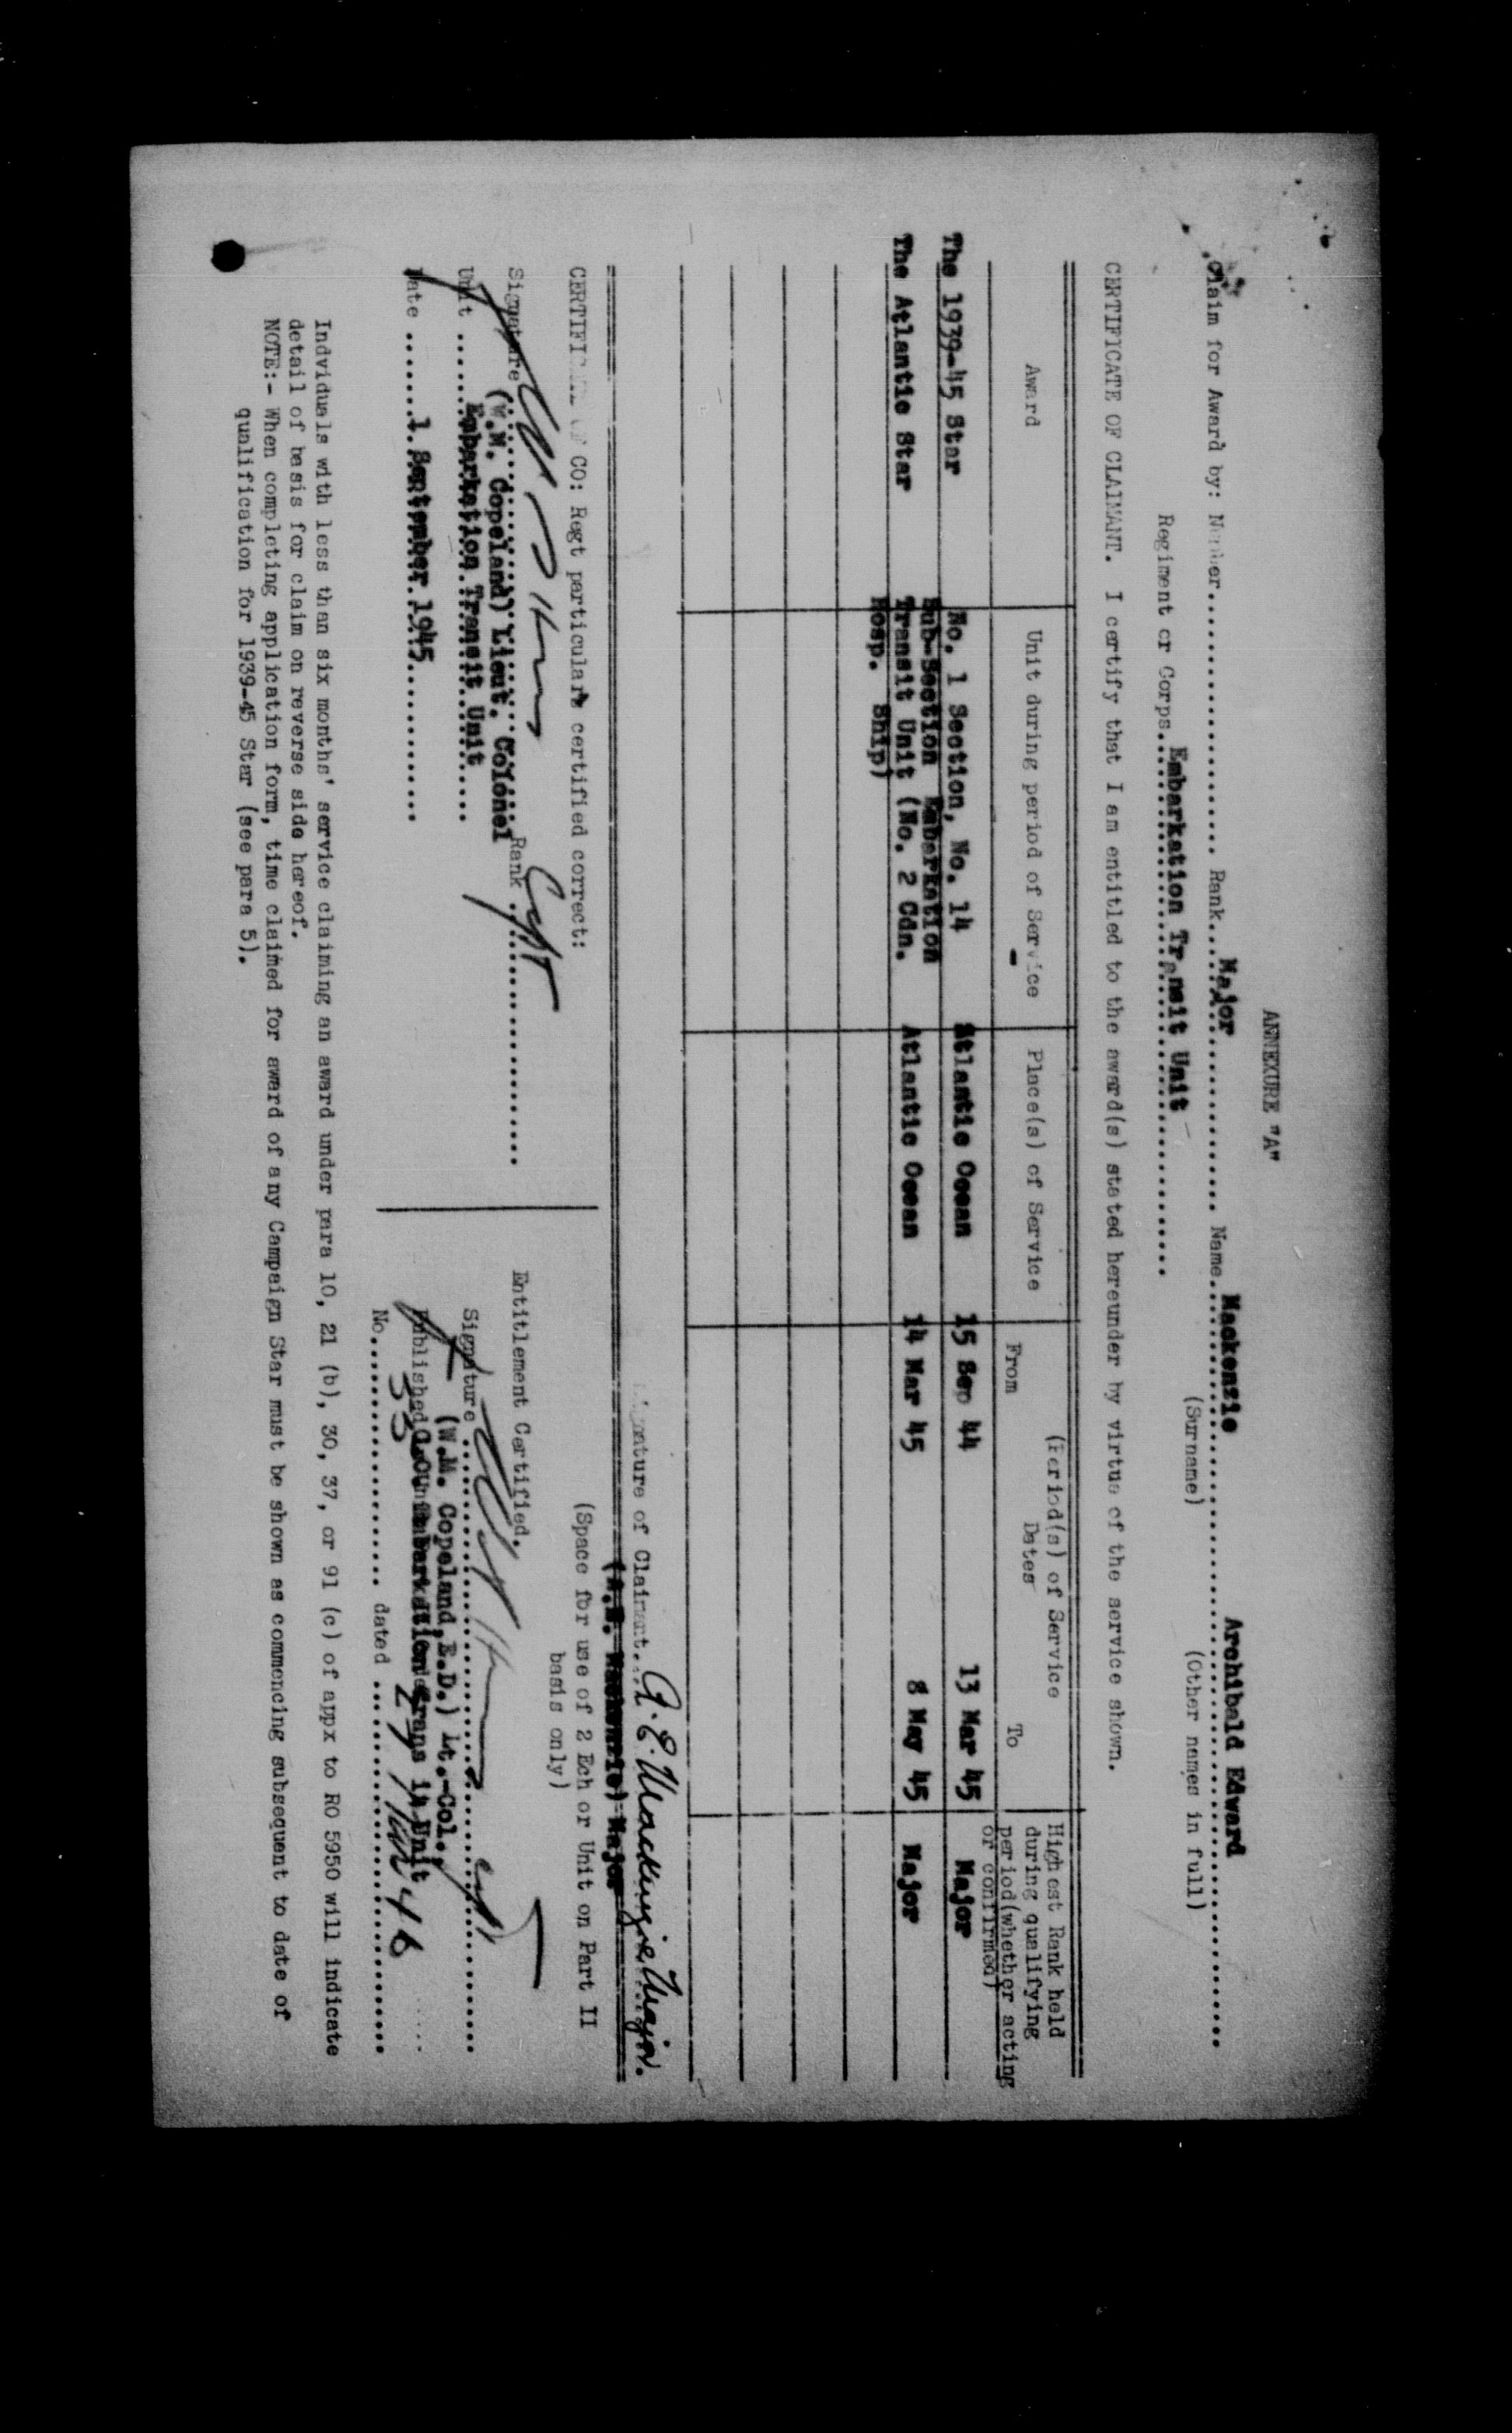 ANNEXURE "A"
Claim for Award by: Number.................... Rank....Major.................... Name....Mackenzie.................... Archibald Edward....................
(Surname) (Other names in full)
Regiment or Corps....Embarkation Transit Unit....................
CERTIFICATE OF CLAIMANT. I certify that I am entitled to the award(s) stated hereunder by virtue of the service shown.
Award
Unit during period of Service
Place(s) of Service
(Period(s) of Service
Dates
From To
Highest Rank held
during qualifying
period(whether acting
or confirmed)
The 1939-45 Star
No. 1 Section, No. 14
Sub-Section Embarkation
Transit Unit (No. 2 Cdn.
Hosp. Ship)
Atlantic Ocean 15 Sep 44 13 Mar 45 Major
The Atlantic Star
Atlantic Ocean 14 Mar 45 8 May 45 Major
Signature of Claimant....A.E. Mackenzie Major.
(A.E. Mackenzie) Major
CERTIFICATE OF CO: Regt particulars certified correct:
Signature.................... Rank....Capt....................
(W.M. Copeland) Lieut. Colonel
Unit ....Embarkation Transit Unit....
Date ....1 September 1945....
(Space for use of 2 Ech or Unit on Part II
basis only)
Entitlement Certified.
Signature.................... Capt
(W.M. Copeland, E.D.) Lt.-Col.,
Published
No....33.... dated ....
Indviduals with less than six months' service claiming an award under para 10, 21 (b), 30, 37, or 91 (c) of appx to RO 5950 will indicate
detail of basis for claim on reverse side hereof.
NOTE:- When completing application form, time claimed for award of any Campaign Star must be shown as commencing subsequent to date of
qualification for 1939-45 Star (see para 5).